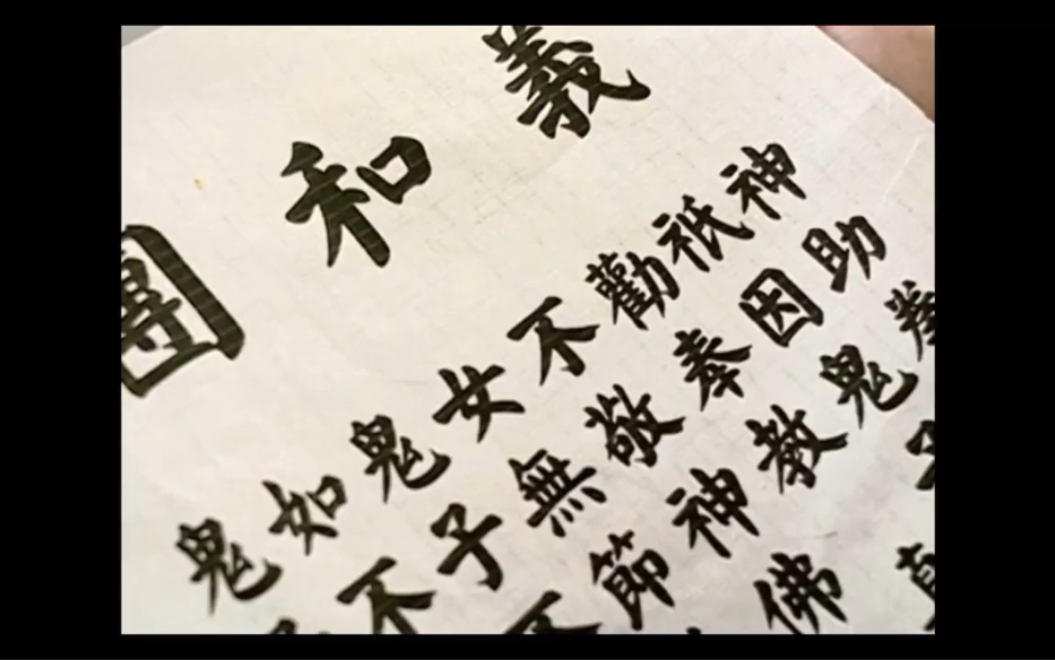 義和團
神助拳
祇因鬼
勸奉教
不敬神佛
女無節
鬼子不
如不
鬼